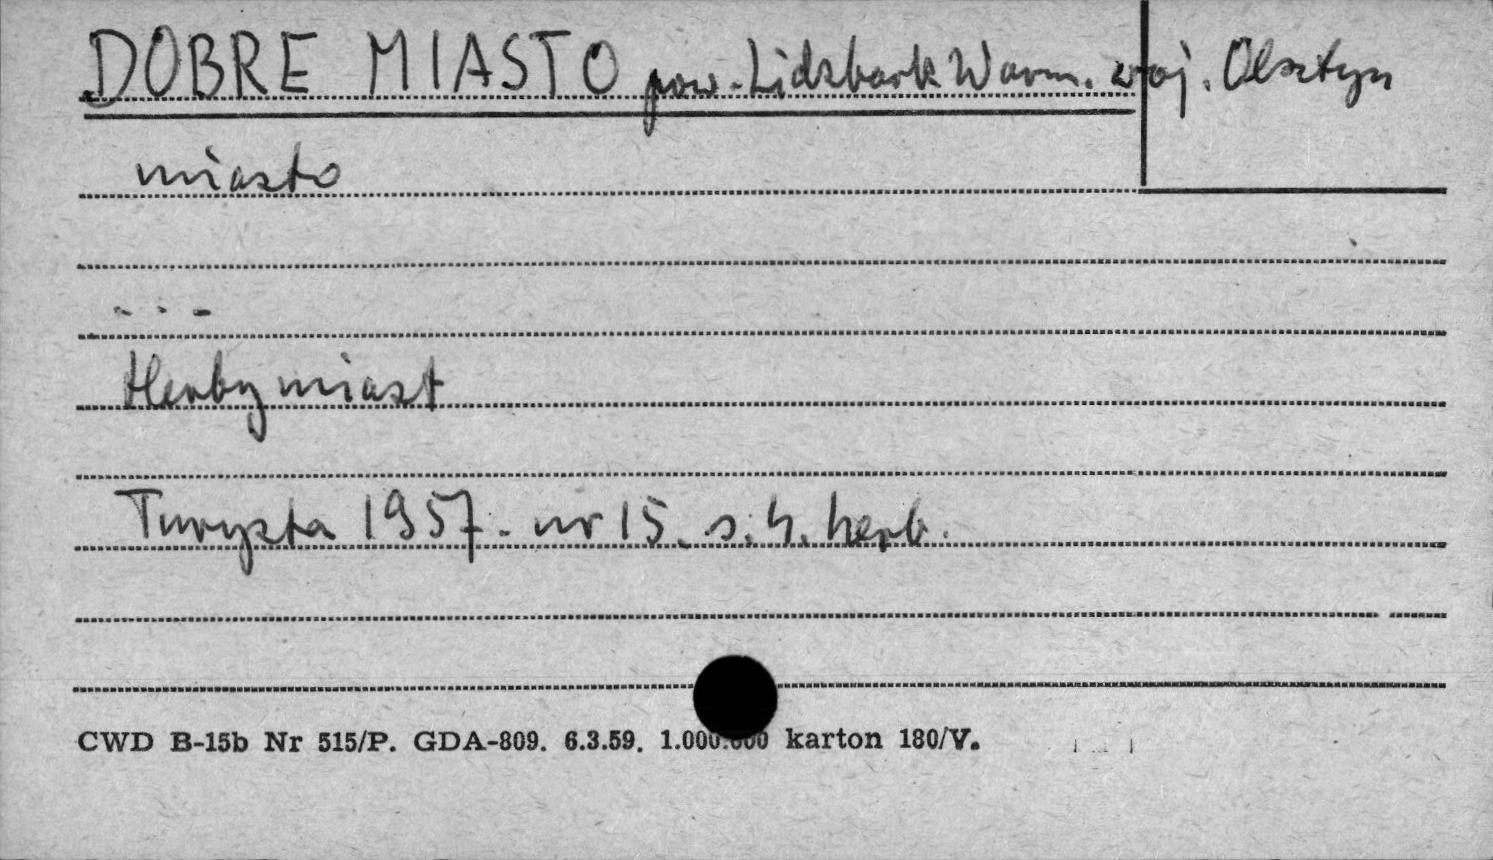 DOBRE MIASTO pow. Lidzbark Warm. woj. Olsztyn
miasto
Herby miast
Turysta 1957. nr 15. s. 4. herb.
CWD B-15b Nr 515/P. GDA-809. 6.3.59. 1.000.000 karton 180/V.